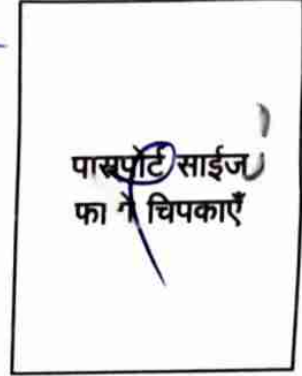 पासपोर्ट साईज
फोटो चिपकाएँ